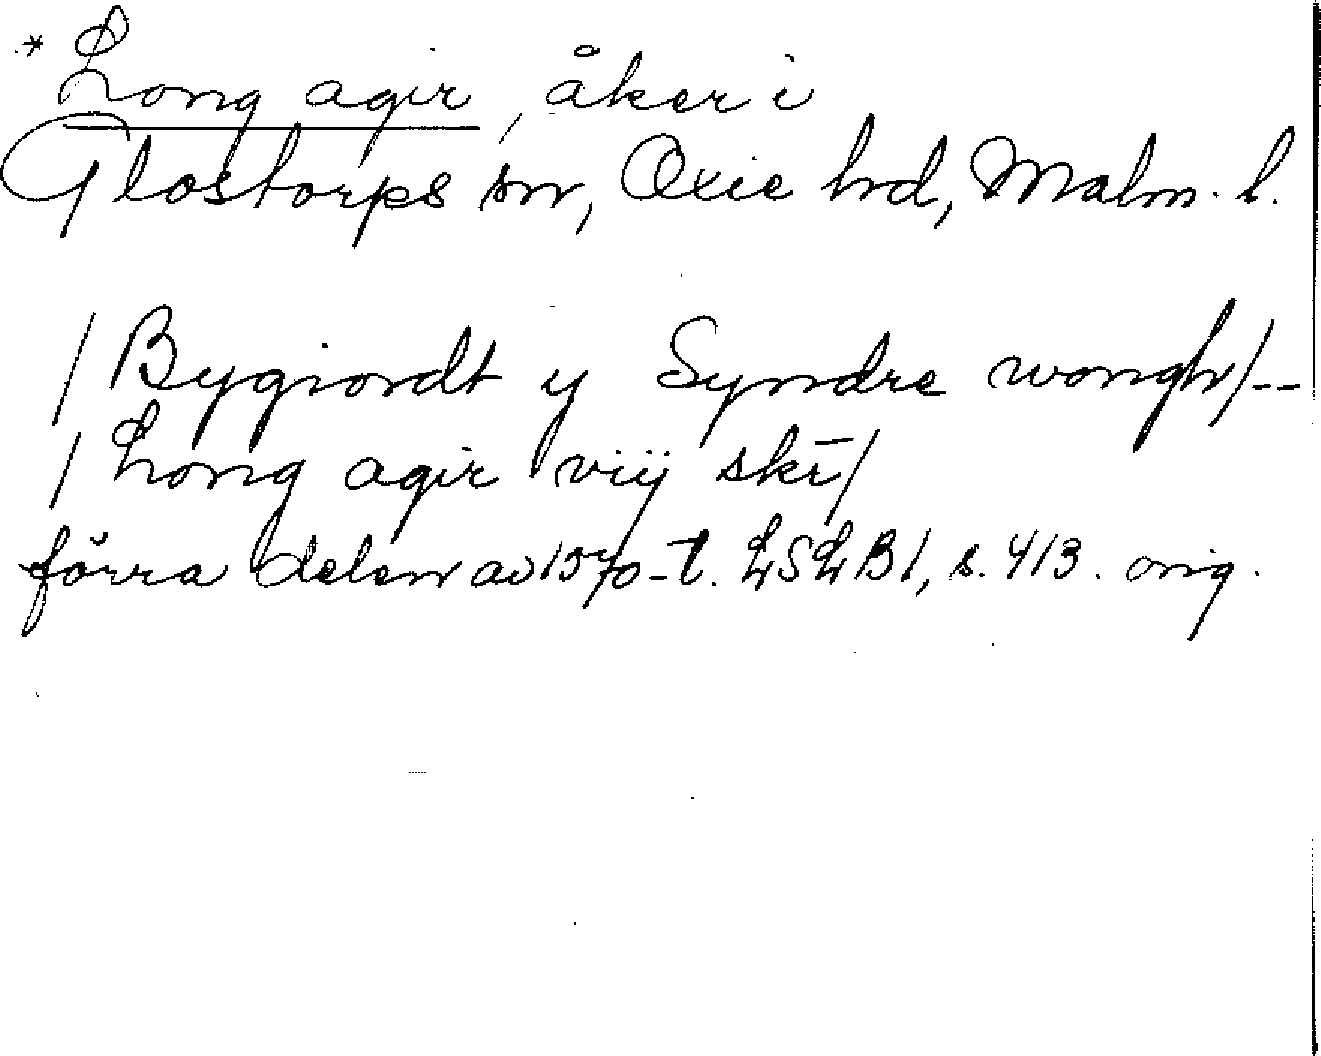 * Long agir, åker i
Glostorps sn, Oxie hd, Malm. l.
/ Bygiordt y Syndre wongh/--
/ Long agir viij skr̄/
förra delen av 1570-t. LSLB1, s. 413. orig.